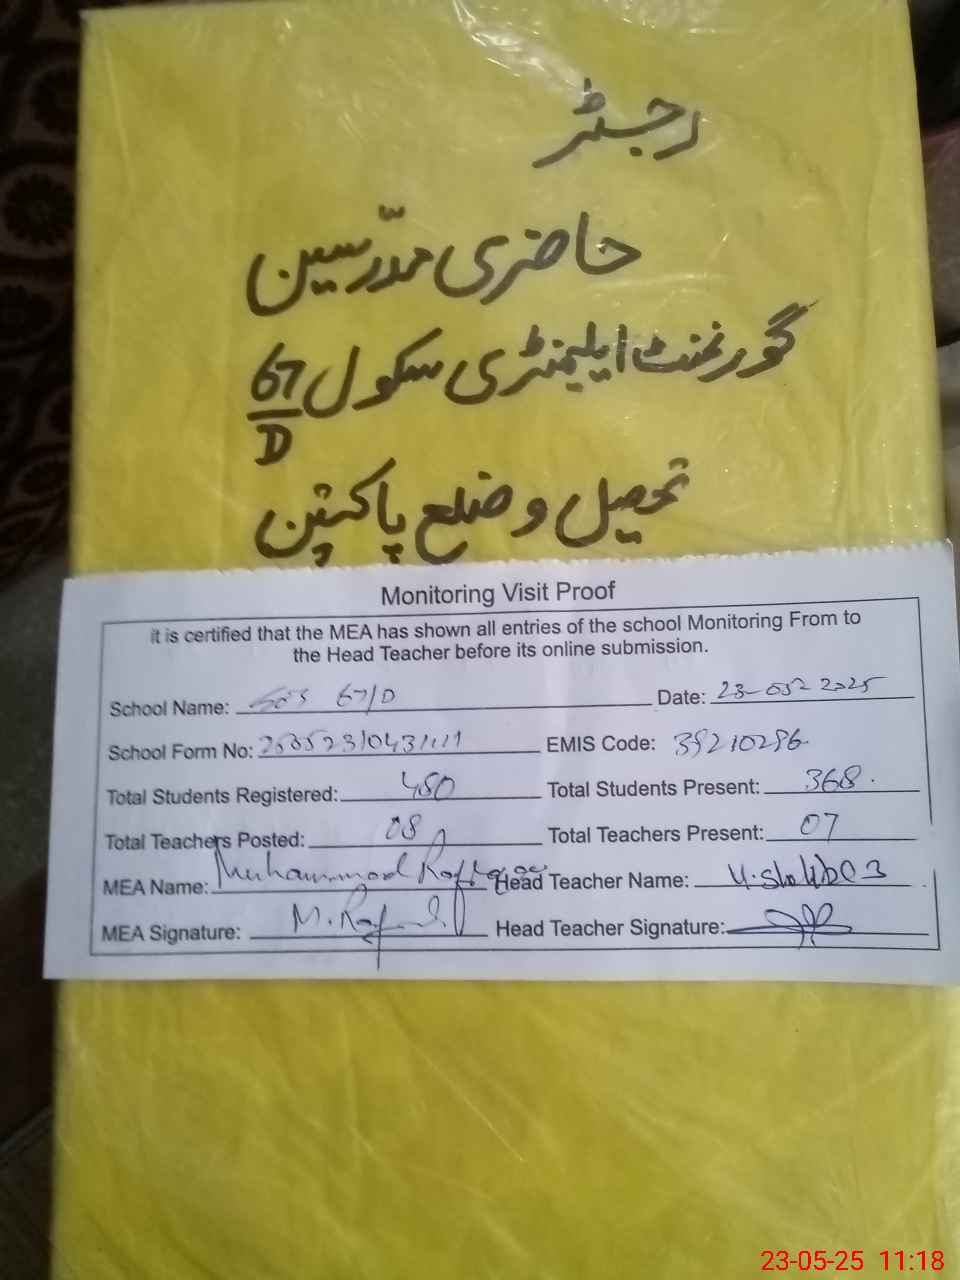 رجسٹر
حاضری مدّرسین
گورنمنٹ ایلیمنٹری سکول 67/D
تحصیل و ضلع پاکپتن
Monitoring Visit Proof
it is certified that the MEA has shown all entries of the school Monitoring From to
the Head Teacher before its online submission.
School Name: 67/D Date: 23-05-2025
School Form No: EMIS Code: 39210296
Total Students Registered: 480 Total Students Present: 368
Total Teachers Posted: 08 Total Teachers Present: 07
MEA Name: Muhammad Head Teacher Name:
MEA Signature: Head Teacher Signature:
23-05-25 11:18